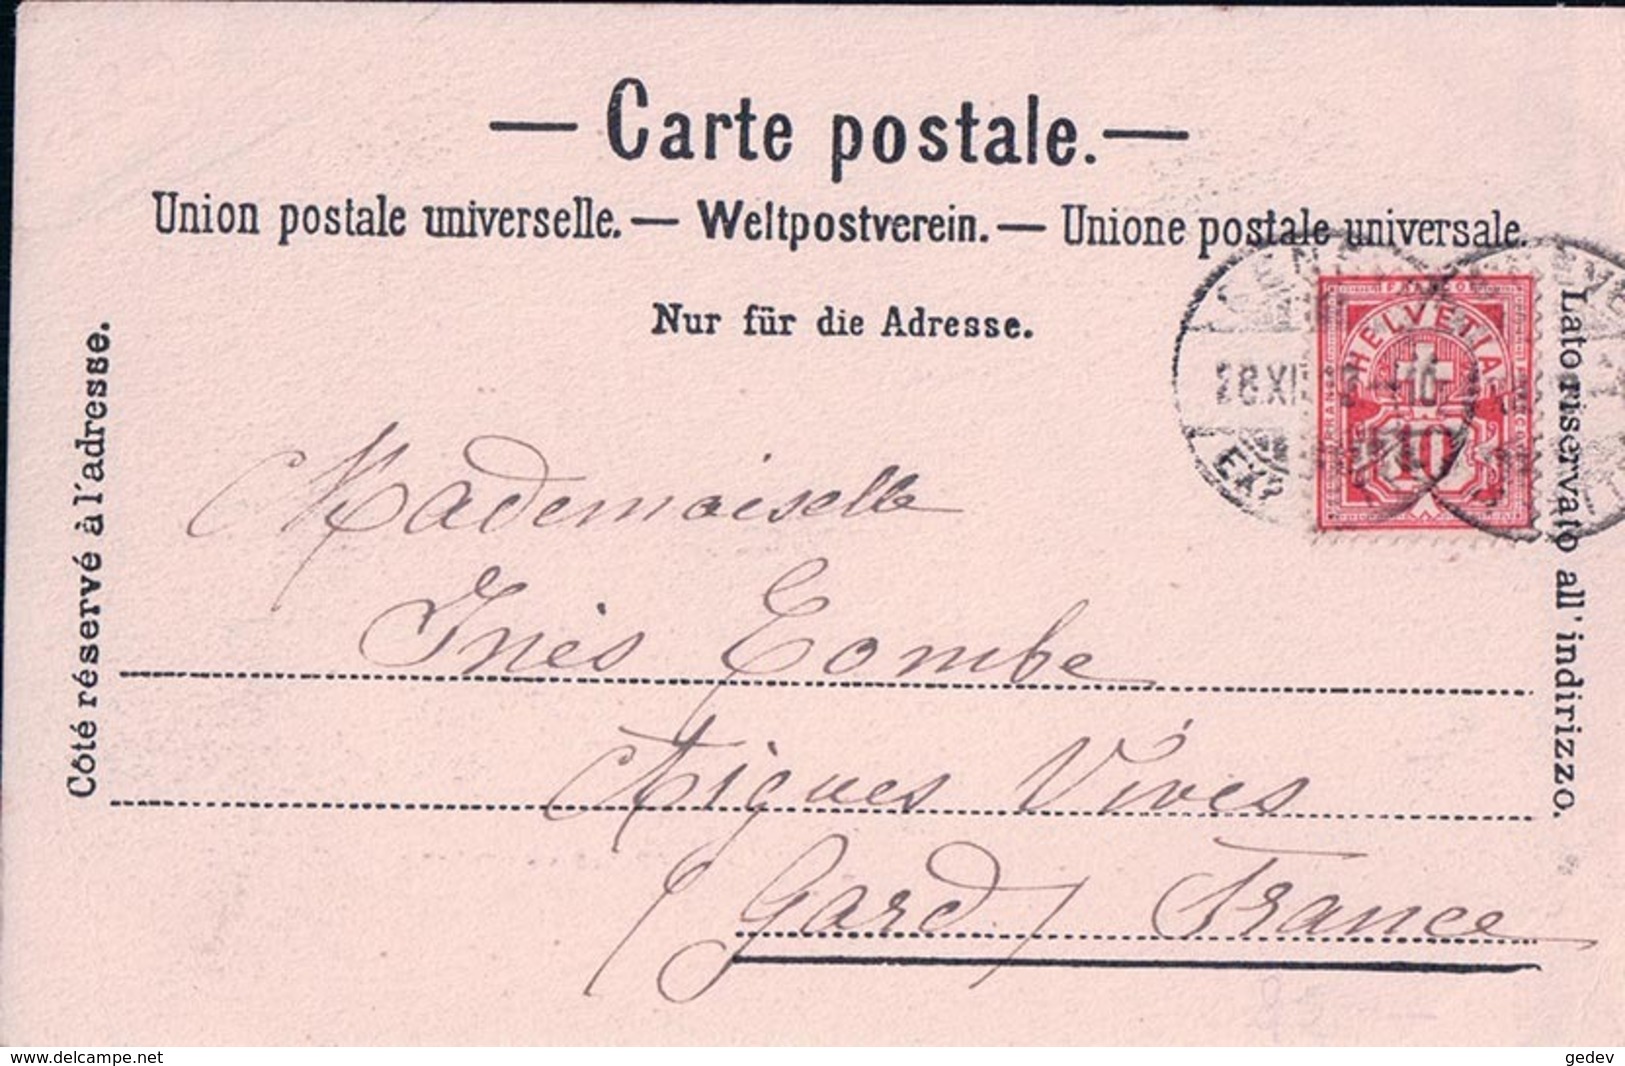 — Carte postale. —
Union postale universelle. — Weltpostverein. — Unione postale universale.
Nur für die Adresse.
Côté réservé à l'adresse.
Lato riservato all'indirizzo.
FRANCO
HELVETIA
10
EXP
Mademoiselle
Inès Combe
Aigues Vives
(Gard) France
www.delcampe.net
gedev